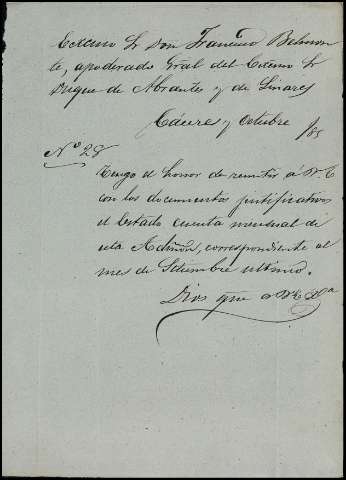 Excmo Sr Don Francisco Belmon
te, apoderado Gral del Excmo Sr
Duque de Abrantes y de Linares
Cáceres y Octubre /85
Nº 28
Tengo el honor de remitir á V.E
con los documentos justificativos
el Estado cuenta mensual de
esta Admon, correspondiente al
mes de Setiembre ultimo.
Dios gue a V.E